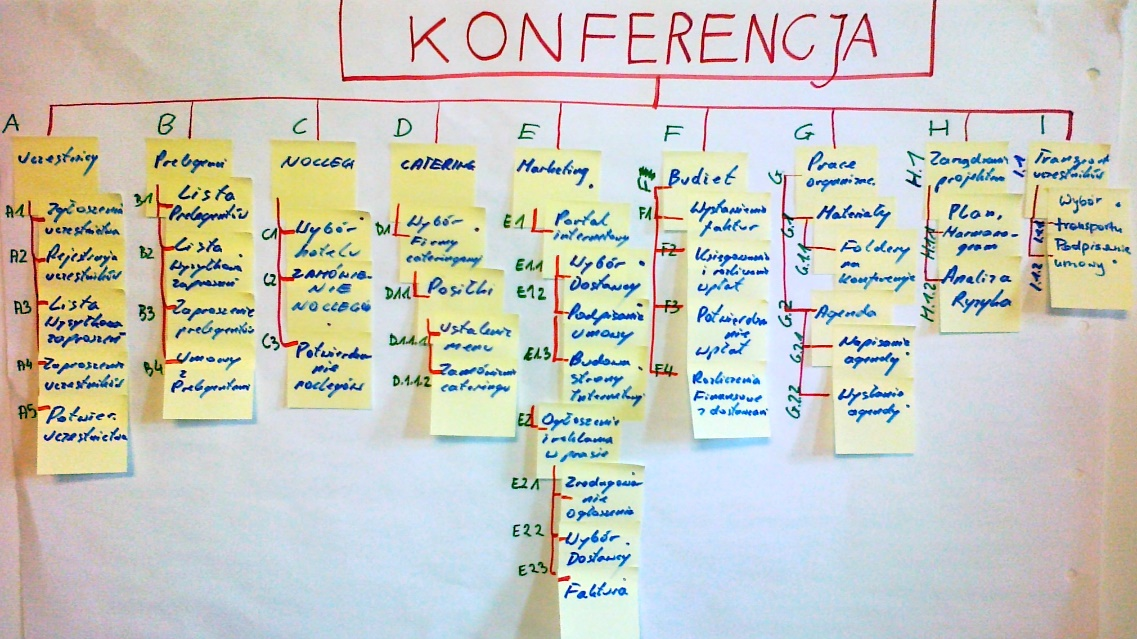 KONFERENCJA
A
Uczestnicy
A1
Zgłoszenia
uczestnictwa
A2
Rejestracja
uczestników
A3
Lista
Wysyłkowa
zaproszeń
A4
Zaproszenie
uczestników
A5
Potwier.
uczestnictwa
B
Prelegenci
B1
Lista
Prelegentów
B2
Lista
Wysyłkowa
zaproszeń
B3
Zaproszenie
prelegentów
B4
Umowy
z
Prelegentami
C
NOCLEGI
C1
Wybór
hotelu
C2
ZAMÓWIE-
NIE
NOCLEGÓW
C3
Potwierdze
nie
noclegów
D
CATERING
D1
Wybór
Firmy
cateringowej
D1.1
Posiłki
D1.1.1
Ustalenie
menu
D.1.1.2
Zamówienie
cateringu
E
Marketing
E.1
Portal
internetowy
E1.1
Wybór
Dostawcy
E1.2
Podpisanie
umowy
E1.3
Budowa
strony
Internetowej
E2
Ogłoszenie
i reklama
w prasie
E2.1
Zredagowa
nie
ogłoszenia
E2.2
Wybór
Dostawcy
E2.3
Faktura
F
Budżet
F1
Wystawienie
faktur
F2
Księgowanie
i rozliczanie
wpłat
F3
Potwierdze
nie
wpłat
F4
Rozliczenia
Finansowe
z dostawcami
G
Prace
organizac.
G.1
Materiały
G.1.1
Foldery
na
konferencje
G.2
Agenda
G.2.1
Napisanie
agendy
G.2.2
Wysłanie
agendy
H
H.1
Zarządzanie
projektem
H.1.1
Plan,
Harmono-
gram
H.1.2
Analiza
Ryzyka
I
I.1
Transport
uczestników
I.1.1
Wybór
transportu
I.1.2
Podpisanie
umowy